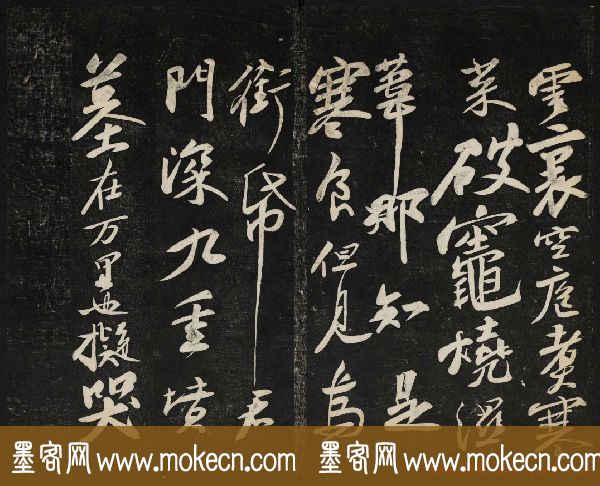 雲裏空庖煮寒
菜破竈燒濕
葦那知是
寒食但見烏
銜帋君
門深九重墳
墓在万里也擬哭
墨客网 www.mokecn.com 墨客网 www.mokecn.com